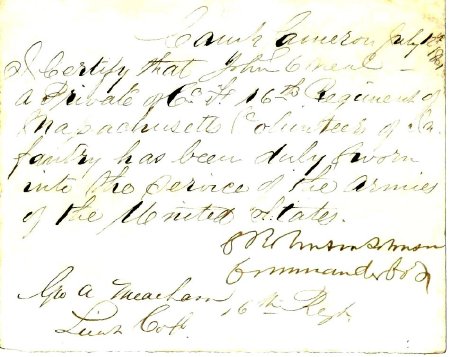 Camp Cameron July
I Certify that John O'neal
a Private of Co. H 16th Regiment of
Massachusetts Volunteers of In
fantry has been duly Sworn
into the Service of the armies
of the United States.
Commander Co.
Geo A Meacham 16th Regt.
Lieut Col.